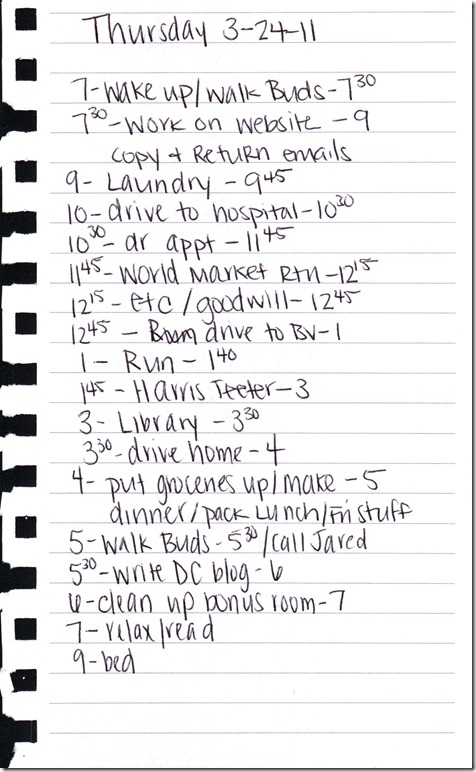 Thursday 3-24-11
7-wake up/walk Buds-7³⁰
7³⁰-work on website -9
copy + Return emails
9- Laundry -9⁴⁵
10-drive to hospital-10³⁰
10³⁰- dr appt -11⁴⁵
11⁴⁵-World Market Rtn-12¹⁵
12¹⁵ - etc/goodwill-12⁴⁵
12⁴⁵ - drive to BV-1
1- Run - 1⁴⁰
1⁴⁵ - Harris Teeter-3
3- Library -3³⁰
3³⁰-drive home -4
4- put groceries up/make -5
dinner/pack Lunch/Fri stuff
5-walk Buds-5³⁰/call Jared
5³⁰-write DC blog-6
6-clean up bonus room-7
7-relax/read
9-bed